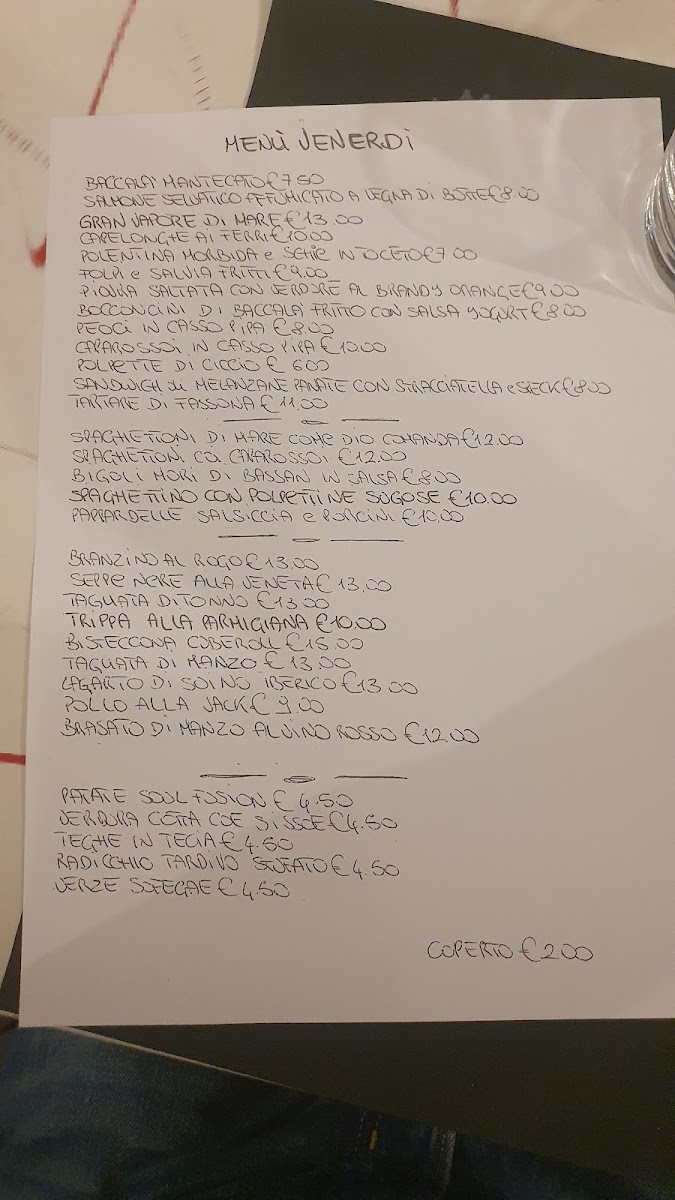 MENÙ VENERDÌ
BACCALA' MANTECATO €7.50
SALMONE SELVATICO AFFUMICATO A LEGNA DI BOTTE €8.00
GRAN VAPORE DI MARE €13.00
CAPELONGHE AI FERRI €10.00
POLENTINA MORBIDA e SEPIE IN TOCETO €7.00
FOLPI e SALVIA FRITTI €9.00
PIOVRA SALTATA CON VERDURE AL BRANDY ORANGE €9.00
BOCCONCINI DI BACCALA' FRITTO CON SALSA YOGURT €8.00
PEOCI IN CASSO PIPA €8.00
CAPAROSSOI IN CASSO PIPA €10.00
POLPETTE DI CICCIO € 6.00
SANDWIGH di MELANZANE PANATE CON STRACCIATELLA e SPECK €8.00
TARTARE DI FASSONA €11.00
SPAGHETTONI DI MARE COME DIO COMANDA €12.00
SPAGHETTONI COI CAPAROSSOI €12.00
BIGOLI MORI DI BASSAN IN SALSA €8.00
SPAGHETTINO CON POLPETTINE SUGOSE €10.00
PAPPARDELLE SALSICCIA e PORCINI €10.00
BRANZINO AL ROGO €13.00
SEPPE NERE ALLA VENETA €13.00
TAGLIATA DI TONNO €13.00
TRIPPA ALLA PARMIGIANA €10.00
BISTECCONA CUBEROLL €15.00
TAGLIATA DI MANZO €13.00
LAGARTO DI SUINO IBERICO €13.00
POLLO ALLA JACK € 9.00
BRASATO DI MANZO AL VINO ROSSO €12.00
PATATE SOUL FUSION € 4.50
VERDURA COTTA COE SISSOE €4.50
TEGHE IN TECIA €4.50
RADICCHIO TARDIVO STUFATO €4.50
VERZE SOFEGAE € 4.50
COPERTO € 2.00